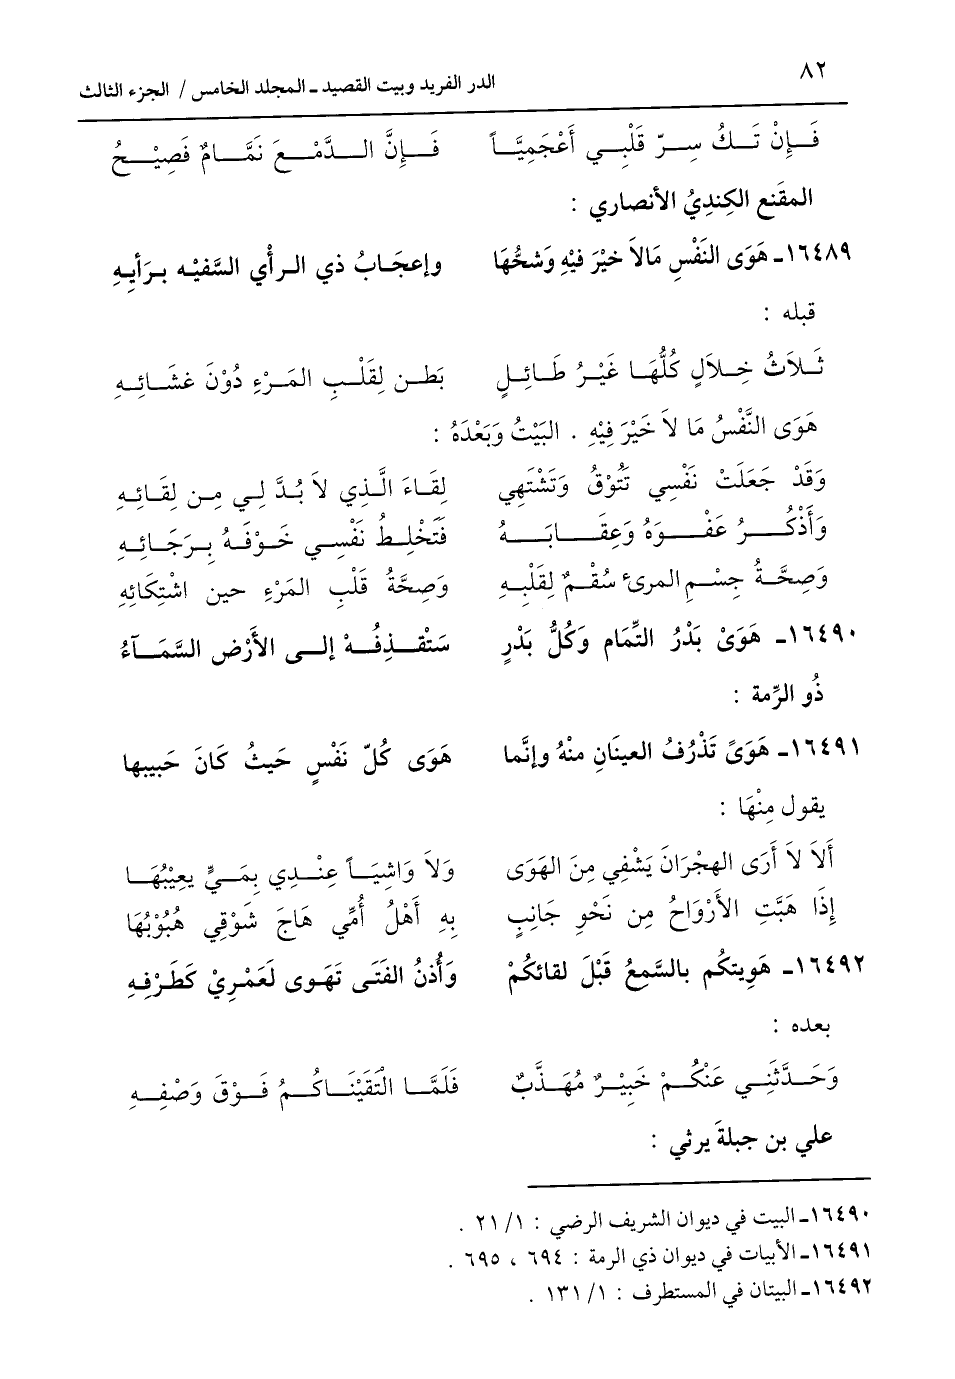 ٨٢ الدر الفريد وبيت القصيد ـ المجلد الخامس / الجزء الثالث
فَإِنْ تَكُ سِرّ قَلْبِي أَعْجَمِيَّاً فَإِنَّ الدَّمْعَ نَمَّامٌ فَصِيْحُ
المقَنع الكِنديُ الأنصاري :
١٦٤٨٩ـ هَوَى النَفْسِ مَالاَ خيْرَ فيْهِ وَشحُّهَا وإعجَابُ ذي الرأْي السَّفيْه برَأيِهِ
قبله :
ثَلاَثُ خِلاَلٍ كُلُّهَا غَيْرُ طَائِلٍ بَطن لِقَلْبِ المَرْءِ دُوْنَ غشَائِهِ
هَوَى النَّفْسُ مَا لاَ خَيْرَ فِيْهِ . البَيْتُ وَبَعْدَهُ :
وَقَدْ جَعَلَتْ نَفْسِي تَتُوْقُ وَتَشْتَهِي لِقَاءَ الَّذِي لاَ بُدَّ لِي مِن لِقَائِهِ
وَأَذْكُرُ عَفْوَهُ وَعِقَابَهُ فَتَخْلِطُ نَفْسِي خَوْفَهُ بِرَجَائِهِ
وَصِحَّةُ جِسْمِ المرئ سُقْمٌ لِقَلْبِهِ وَصِحَّةُ قَلْبِ المَرْءِ حين اشْتِكَائِهِ
١٦٤٩٠ـ هَوَىْ بَدْرُ التِّمَام وَكُلُّ بَدْرٍ سَتْقذِفُهْ إلى الأَرْض السَّمَآءُ
ذُو الرِّمة :
١٦٤٩١ـ هَوَىً تَذْرُفُ العينَانِ منْهُ وإنَّما هَوَى كُلّ نَفْسٍ حَيثُ كَانَ حَبيبها
يقول مِنْهَا :
أَلاَ لاَ أَرَى الهِجْرَانَ يَشْفِي مِنَ الهَوَى وَلاَ وَاشِيَاً عِنْدِي بِمَيٍّ يعِيْبُهَا
إِذَا هَبَّتِ الأَرْوَاحُ مِن نَحْوِ جَانِبٍ بِهِ أَهْلُ أُمِّي هَاجَ شَوْقِي هُبُوْبُهَا
١٦٤٩٢ـ هَوِيتكُم بالسَّمعُ قَبْلَ لقائكُمْ وَأُذنُ الفَتَى تَهَوى لَعَمرِيْ كَطَرْفِهِ
بعده :
وَحَدَّثَنِي عَنْكُمْ خَبِيْرٌ مُهَذَّبٌ فَلَمَّا الْتَقَيْنَاكُمُ فَوْقَ وَصْفِهِ
علي بن جبلةَ يرثي :
١٦٤٩٠ـ البيت في ديوان الشريف الرضي : ١/ ٢١ .
١٦٤٩١ـ الأبيات في ديوان ذي الرمة : ٦٩٤ ، ٦٩٥ .
١٦٤٩٢ـ البيتان في المستطرف : ١/ ١٣١ .